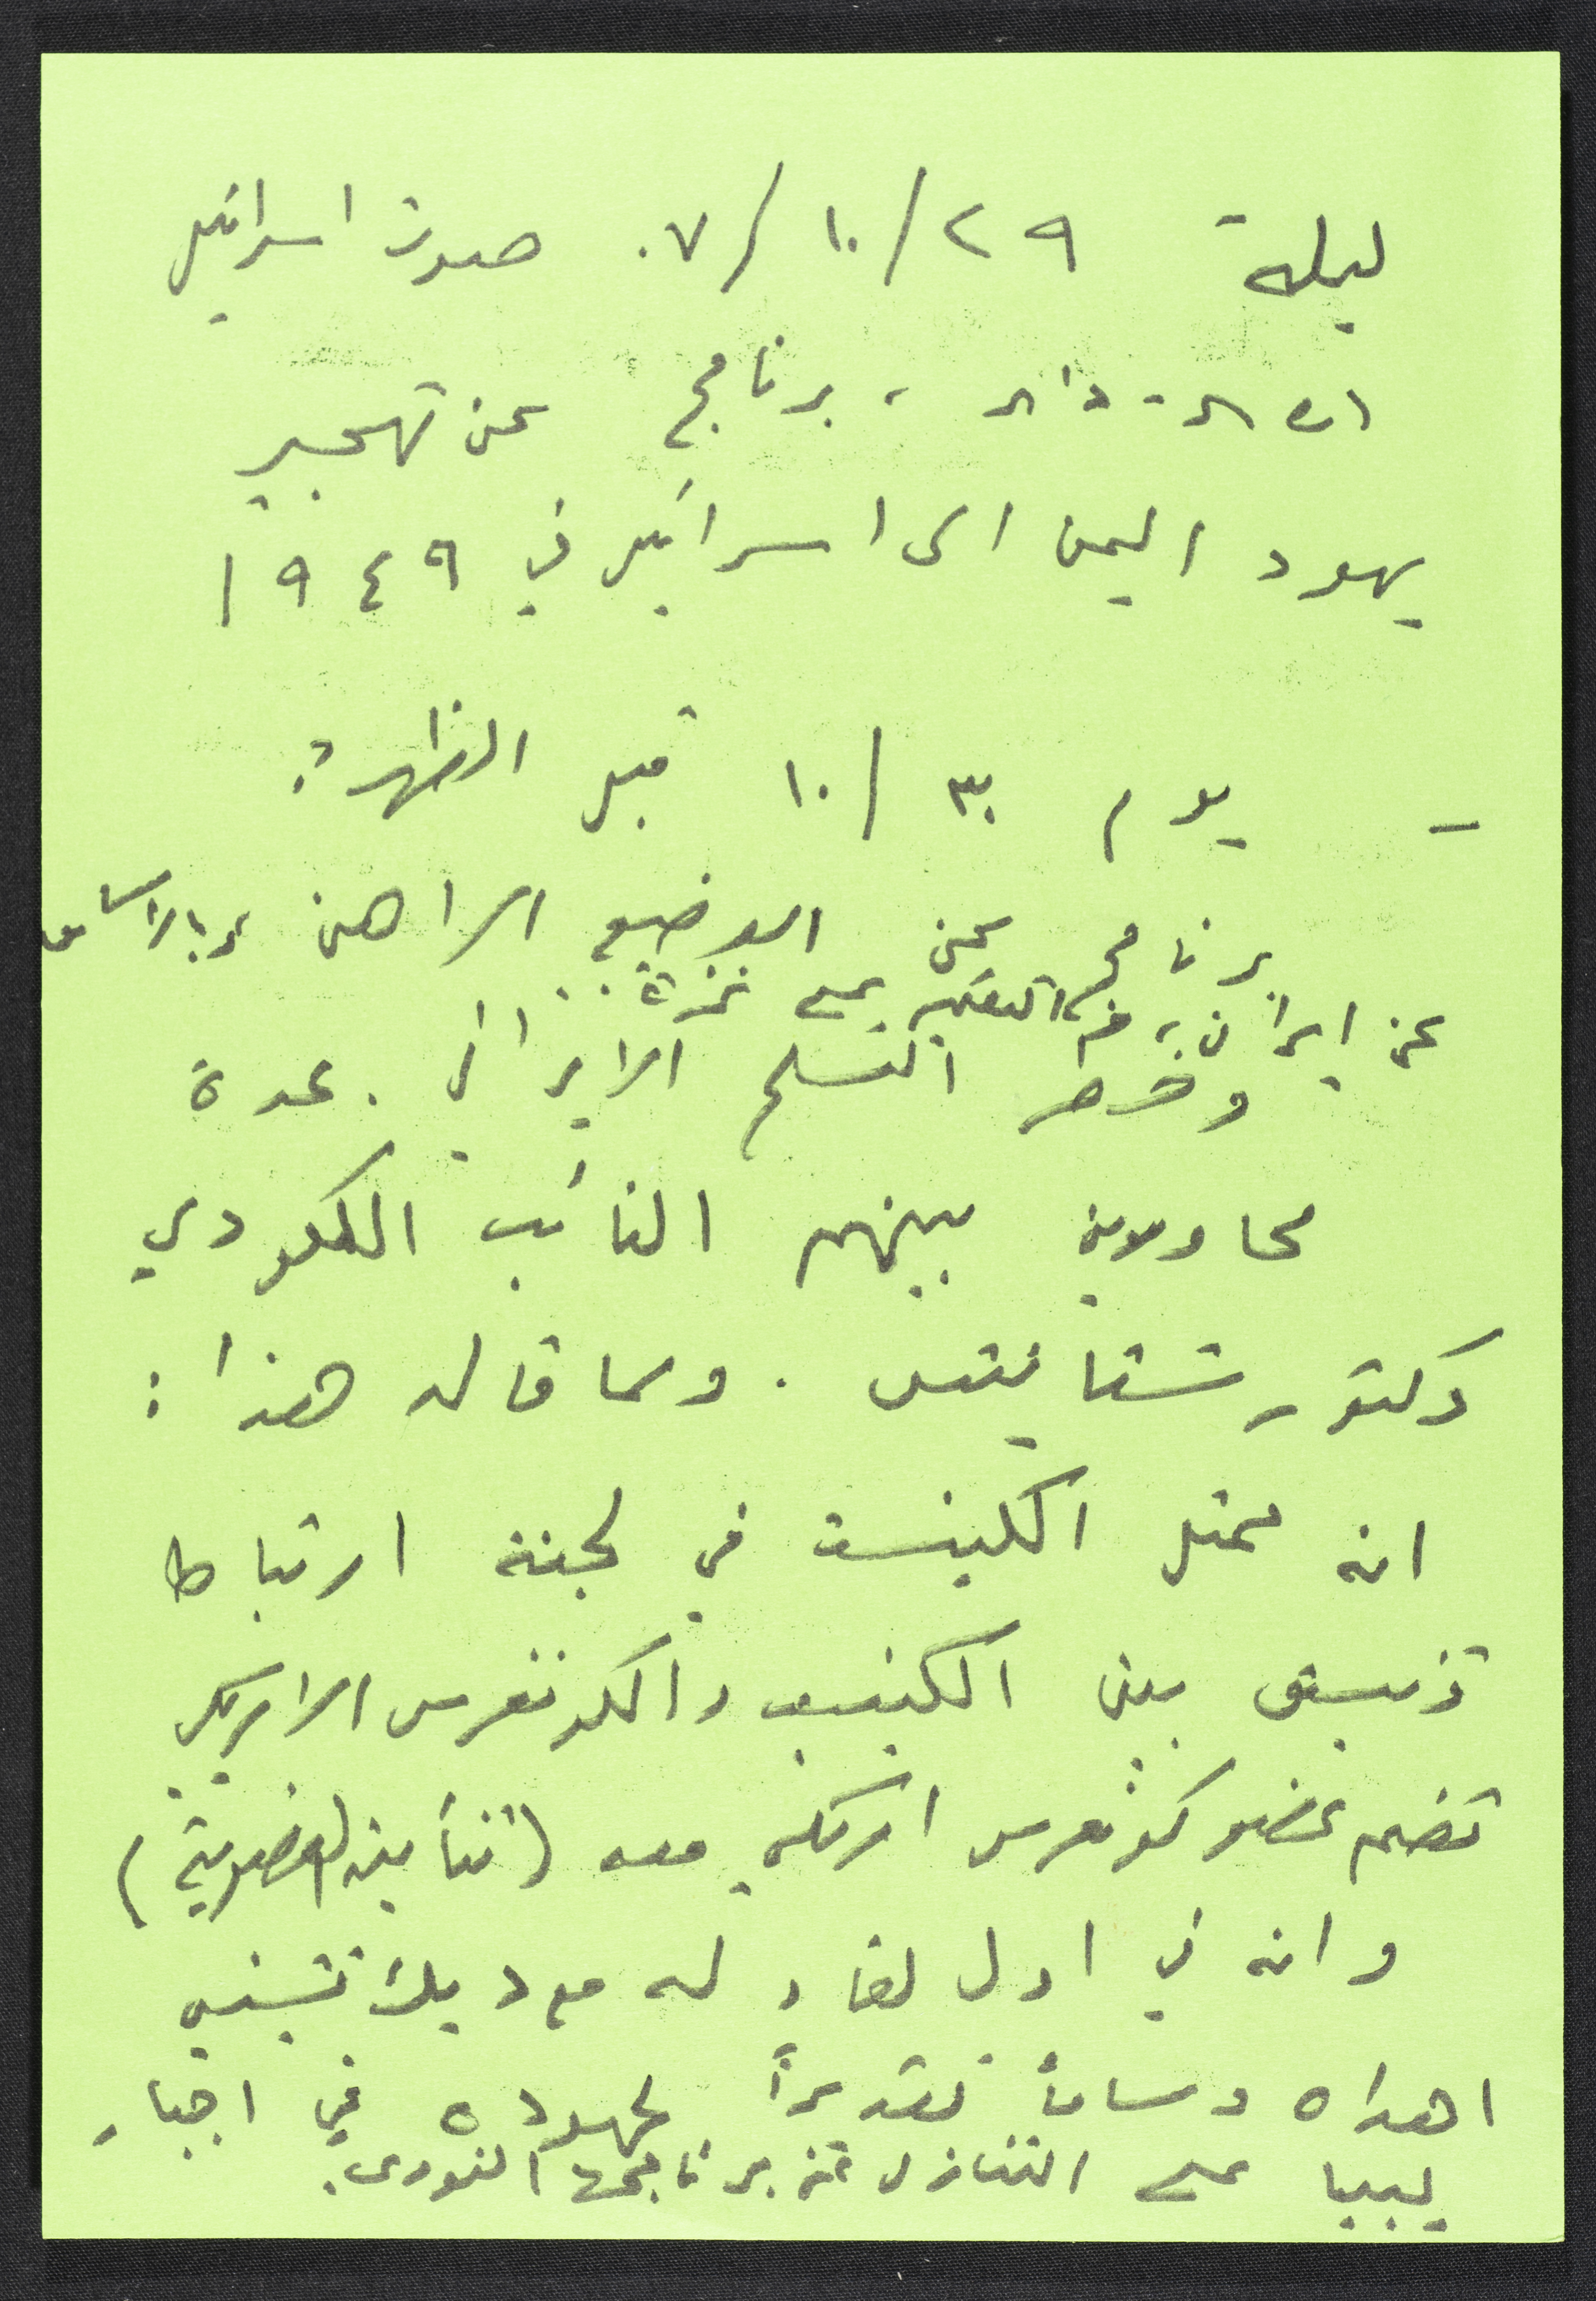 ليلة ٢٩/١٠/٠٧ صوت اسرائيل
، برنامج عن تهجير
يهود اليمن الى اسرائيل في ١٩٤٩
- يوم ٣٠/١٠ قبل الظهر:
برنامج عن الوضع الراهن وبالاساس
عن ايران، على غزة
وخطر التسلح الايراني. عدة
محاورين بينهم النائب الليكودي
دكتور شتاينتس. ومما قاله هذا:
انه ممثل الكنيست في لجنة ارتباط
تنسيق بين الكنيست والكونغرس الامريكي
تضم عضو كونغرس امريكي معه (ثنائية العضوية)
وانه في اول لقاء له مع ديك تشيني
اهداه وساماً تقديراً لجهوده في اجبار
ليبيا على التنازل عن برنامجها النووي.